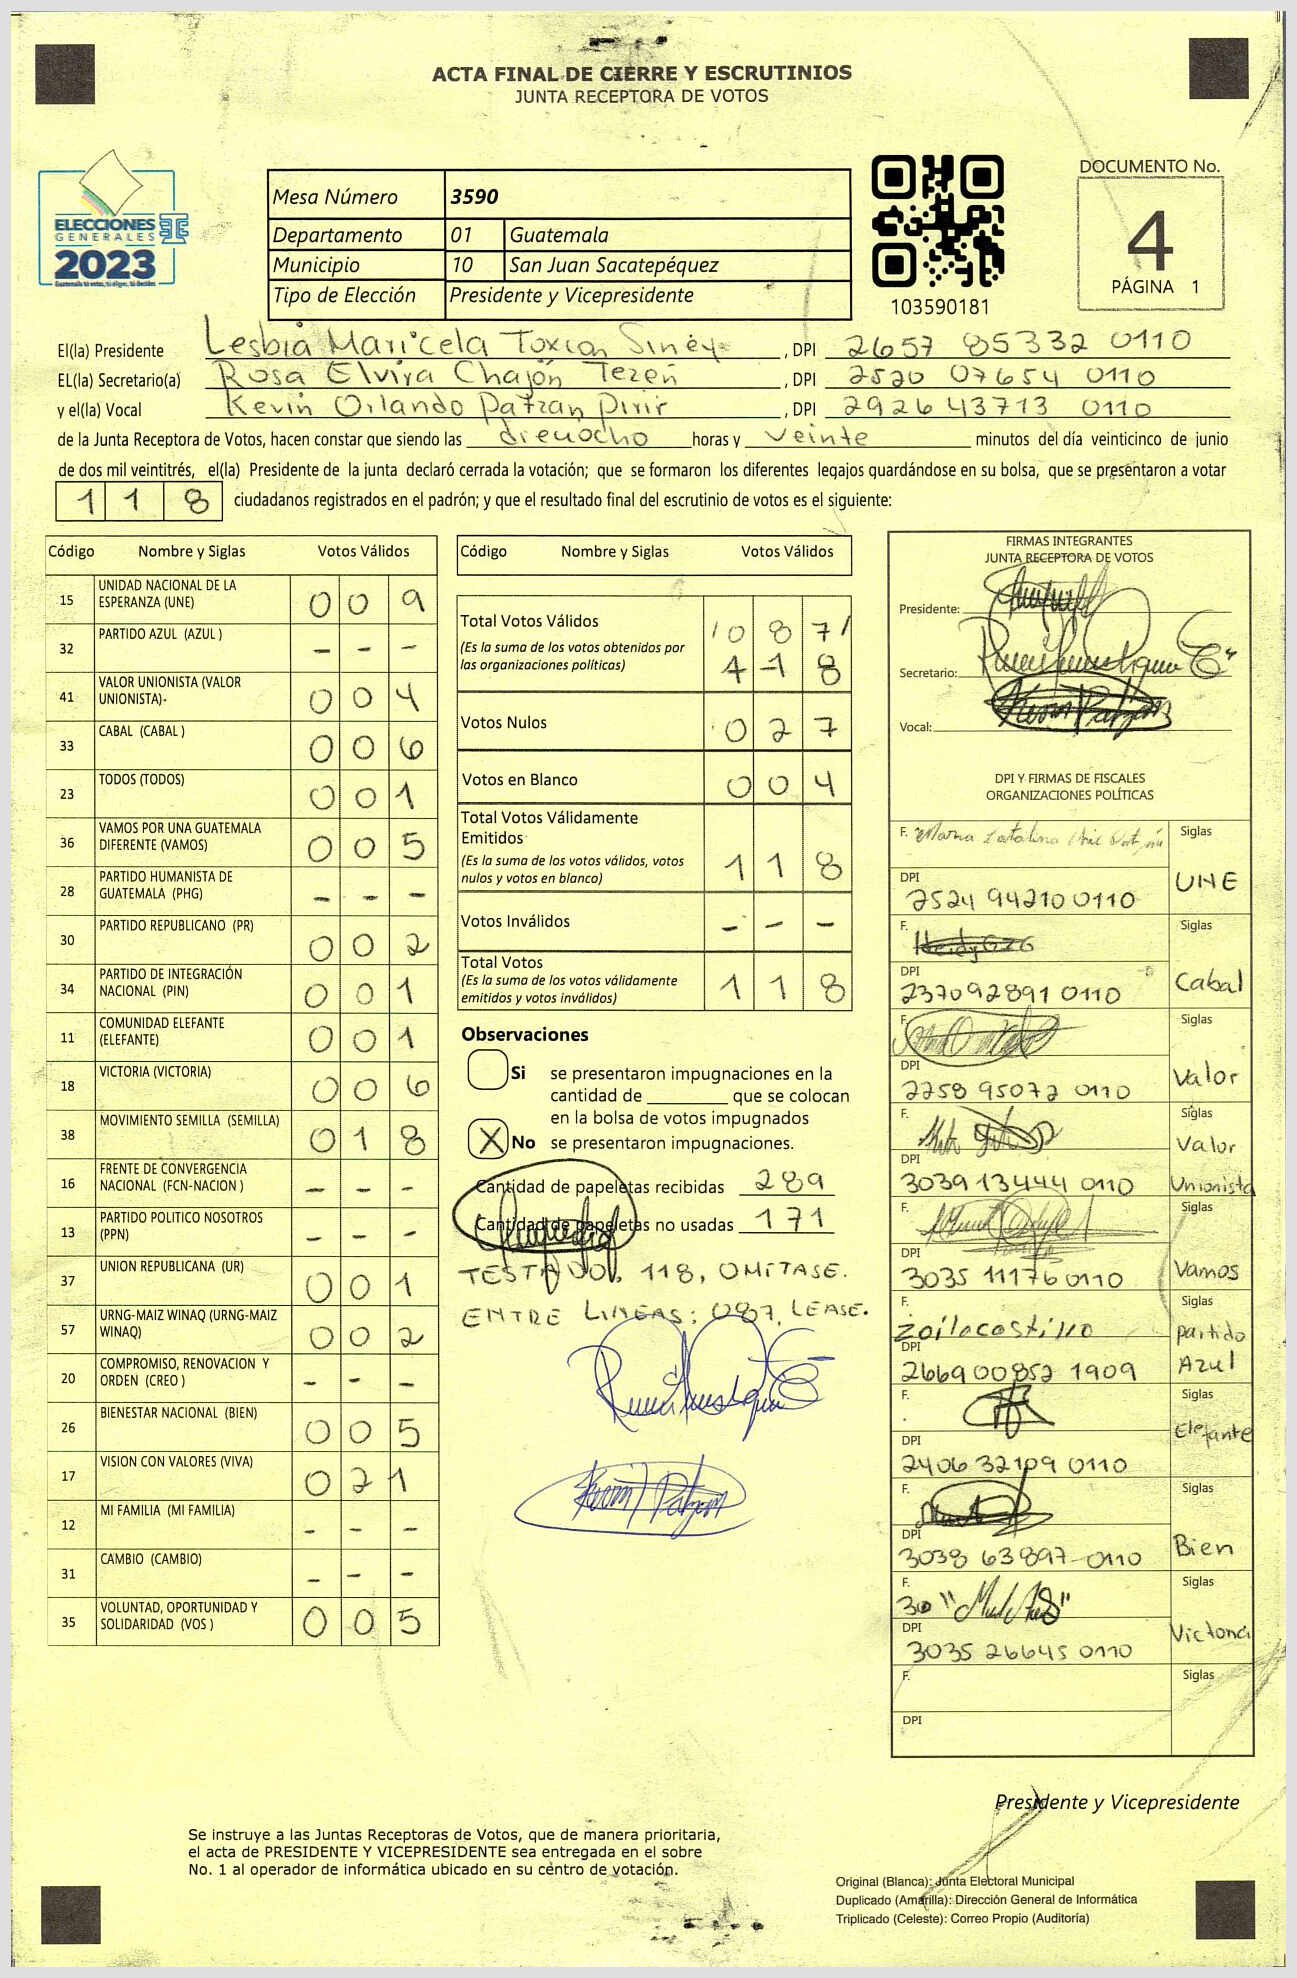 ACTA FINAL DE CIERRE Y ESCRUTINIOS
JUNTA RECEPTORA DE VOTOS
ELECCIONES
GENERALES
2023
Mesa Número 3590
Departamento 01 Guatemala
Municipio 10 San Juan Sacatepéquez
Tipo de Elección Presidente y Vicepresidente
103590181
DOCUMENTO No.
4
PÁGINA 1
El(la) Presidente Lesbia Maricela Toxcon Siney , DPI 2657 85332 0110
EL(la) Secretario(a) Rosa Elvira Chajón Tezen , DPI 2520 07654 0110
y el(la) Vocal Kevin Orlando Patzan Pirir , DPI 2926 43713 0110
de la Junta Receptora de Votos, hacen constar que siendo las dieciocho horas y veinte minutos del día veinticinco de junio
de dos mil veintitrés, el(la) Presidente de la junta declaró cerrada la votación; que se formaron los diferentes legajos guardándose en su bolsa, que se presentaron a votar
118 ciudadanos registrados en el padrón; y que el resultado final del escrutinio de votos es el siguiente:
Código Nombre y Siglas Votos Válidos
15 UNIDAD NACIONAL DE LA ESPERANZA (UNE) 0 0 9
32 PARTIDO AZUL (AZUL ) - - -
41 VALOR UNIONISTA (VALOR UNIONISTA)- 0 0 4
33 CABAL (CABAL ) 0 0 6
23 TODOS (TODOS) 0 0 1
36 VAMOS POR UNA GUATEMALA DIFERENTE (VAMOS) 0 0 5
28 PARTIDO HUMANISTA DE GUATEMALA (PHG) - - -
30 PARTIDO REPUBLICANO (PR) 0 0 2
34 PARTIDO DE INTEGRACIÓN NACIONAL (PIN) 0 0 1
11 COMUNIDAD ELEFANTE (ELEFANTE) 0 0 1
18 VICTORIA (VICTORIA) 0 0 6
38 MOVIMIENTO SEMILLA (SEMILLA) 0 1 8
16 FRENTE DE CONVERGENCIA NACIONAL (FCN-NACION ) - - -
13 PARTIDO POLITICO NOSOTROS (PPN) - - -
37 UNION REPUBLICANA (UR) 0 0 1
57 URNG-MAIZ WINAQ (URNG-MAIZ WINAQ) 0 0 2
20 COMPROMISO, RENOVACION Y ORDEN (CREO ) - - -
26 BIENESTAR NACIONAL (BIEN) 0 0 5
17 VISION CON VALORES (VIVA) 0 2 1
12 MI FAMILIA (MI FAMILIA) - - -
31 CAMBIO (CAMBIO) - - -
35 VOLUNTAD, OPORTUNIDAD Y SOLIDARIDAD (VOS ) 0 0 5
Código Nombre y Siglas Votos Válidos
Total Votos Válidos 0 8 7
(Es la suma de los votos obtenidos por
las organizaciones políticas) 1 1 8
Votos Nulos 0 2 7
Votos en Blanco 0 0 4
Total Votos Válidamente
Emitidos
(Es la suma de los votos válidos, votos
nulos y votos en blanco) 1 1 8
Votos Inválidos - - -
Total Votos
(Es la suma de los votos válidamente
emitidos y votos inválidos) 1 1 8
Observaciones
Si se presentaron impugnaciones en la
cantidad de ________ que se colocan
en la bolsa de votos impugnados
X No se presentaron impugnaciones.
Cantidad de papeletas recibidas 289
Cantidad de papeletas no usadas 171
TESTADO, 118, OMITASE.
ENTRE LINEAS: 087, LEASE.
FIRMAS INTEGRANTES
JUNTA RECEPTORA DE VOTOS
Presidente:
Secretario:
Vocal:
DPI Y FIRMAS DE FISCALES
ORGANIZACIONES POLÍTICAS
F. Maria Catalina Siglas
DPI 2524 94210 0110 UNE
F. Siglas
DPI 2370 92891 0110 Cabal
F. Siglas
DPI 2258 95072 0110 Valor
F. Siglas
DPI 3039 13444 0110 Valor Unionista
F. Siglas
DPI 3035 11176 0110 Vamos
F. Zoilacastillo Siglas
DPI 2669 00852 1909 partido Azul
F. Siglas
DPI 2406 32109 0110 Elefante
F. Siglas
DPI 3038 63897 0110 Bien
F. Siglas
DPI 3035 26645 0110 Victoria
F. Siglas
DPI
Presidente y Vicepresidente
Se instruye a las Juntas Receptoras de Votos, que de manera prioritaria,
el acta de PRESIDENTE Y VICEPRESIDENTE sea entregada en el sobre
No. 1 al operador de informática ubicado en su centro de votación.
Original (Blanca): Junta Electoral Municipal
Duplicado (Amarilla): Dirección General de Informática
Triplicado (Celeste): Correo Propio (Auditoría)